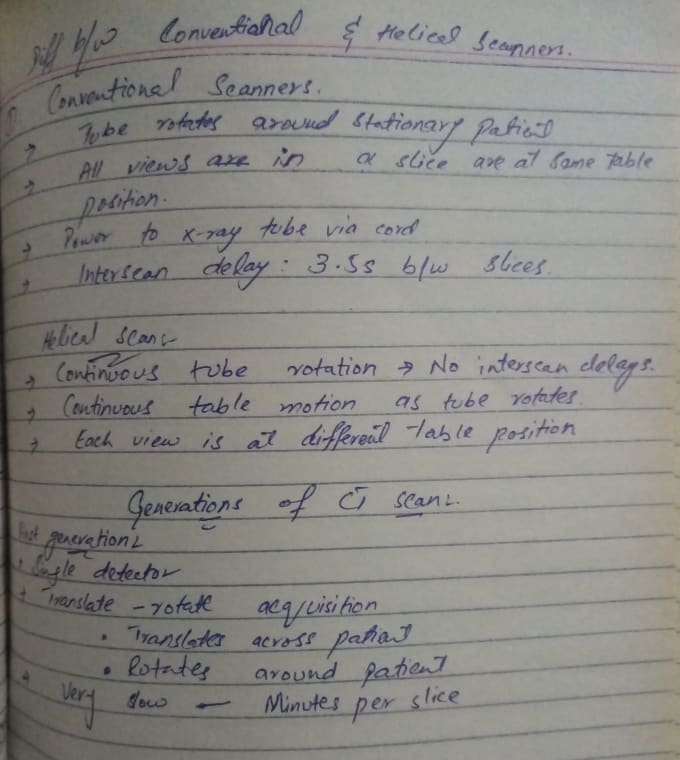 Diff b/w Conventional & Helical Scanners.
Conventional Scanners.
→ Tube rotates around stationary patient
→ All views are in a slice are at same table
position.
→ Power to x-ray tube via cord
→ Interscan delay: 3.5s b/w slices.
Helical scan:-
→ Continuous tube rotation → No interscan delays.
→ Continuous table motion as tube rotates.
→ Each view is at different table position
Generations of CT scan:-
First generation:-
• Single detector
→ Translate - rotate acquisition
• Translates across patient
• Rotates around patient
→ Very slow — Minutes per slice